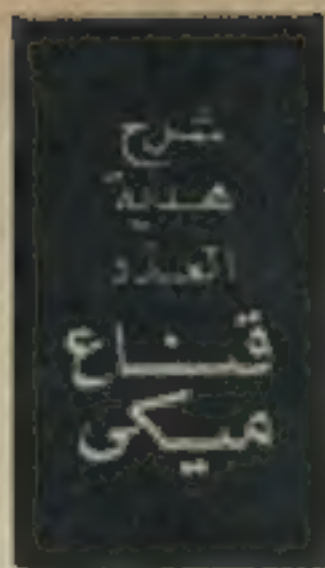 شرح
هدية
العدد
قناع
ميكى